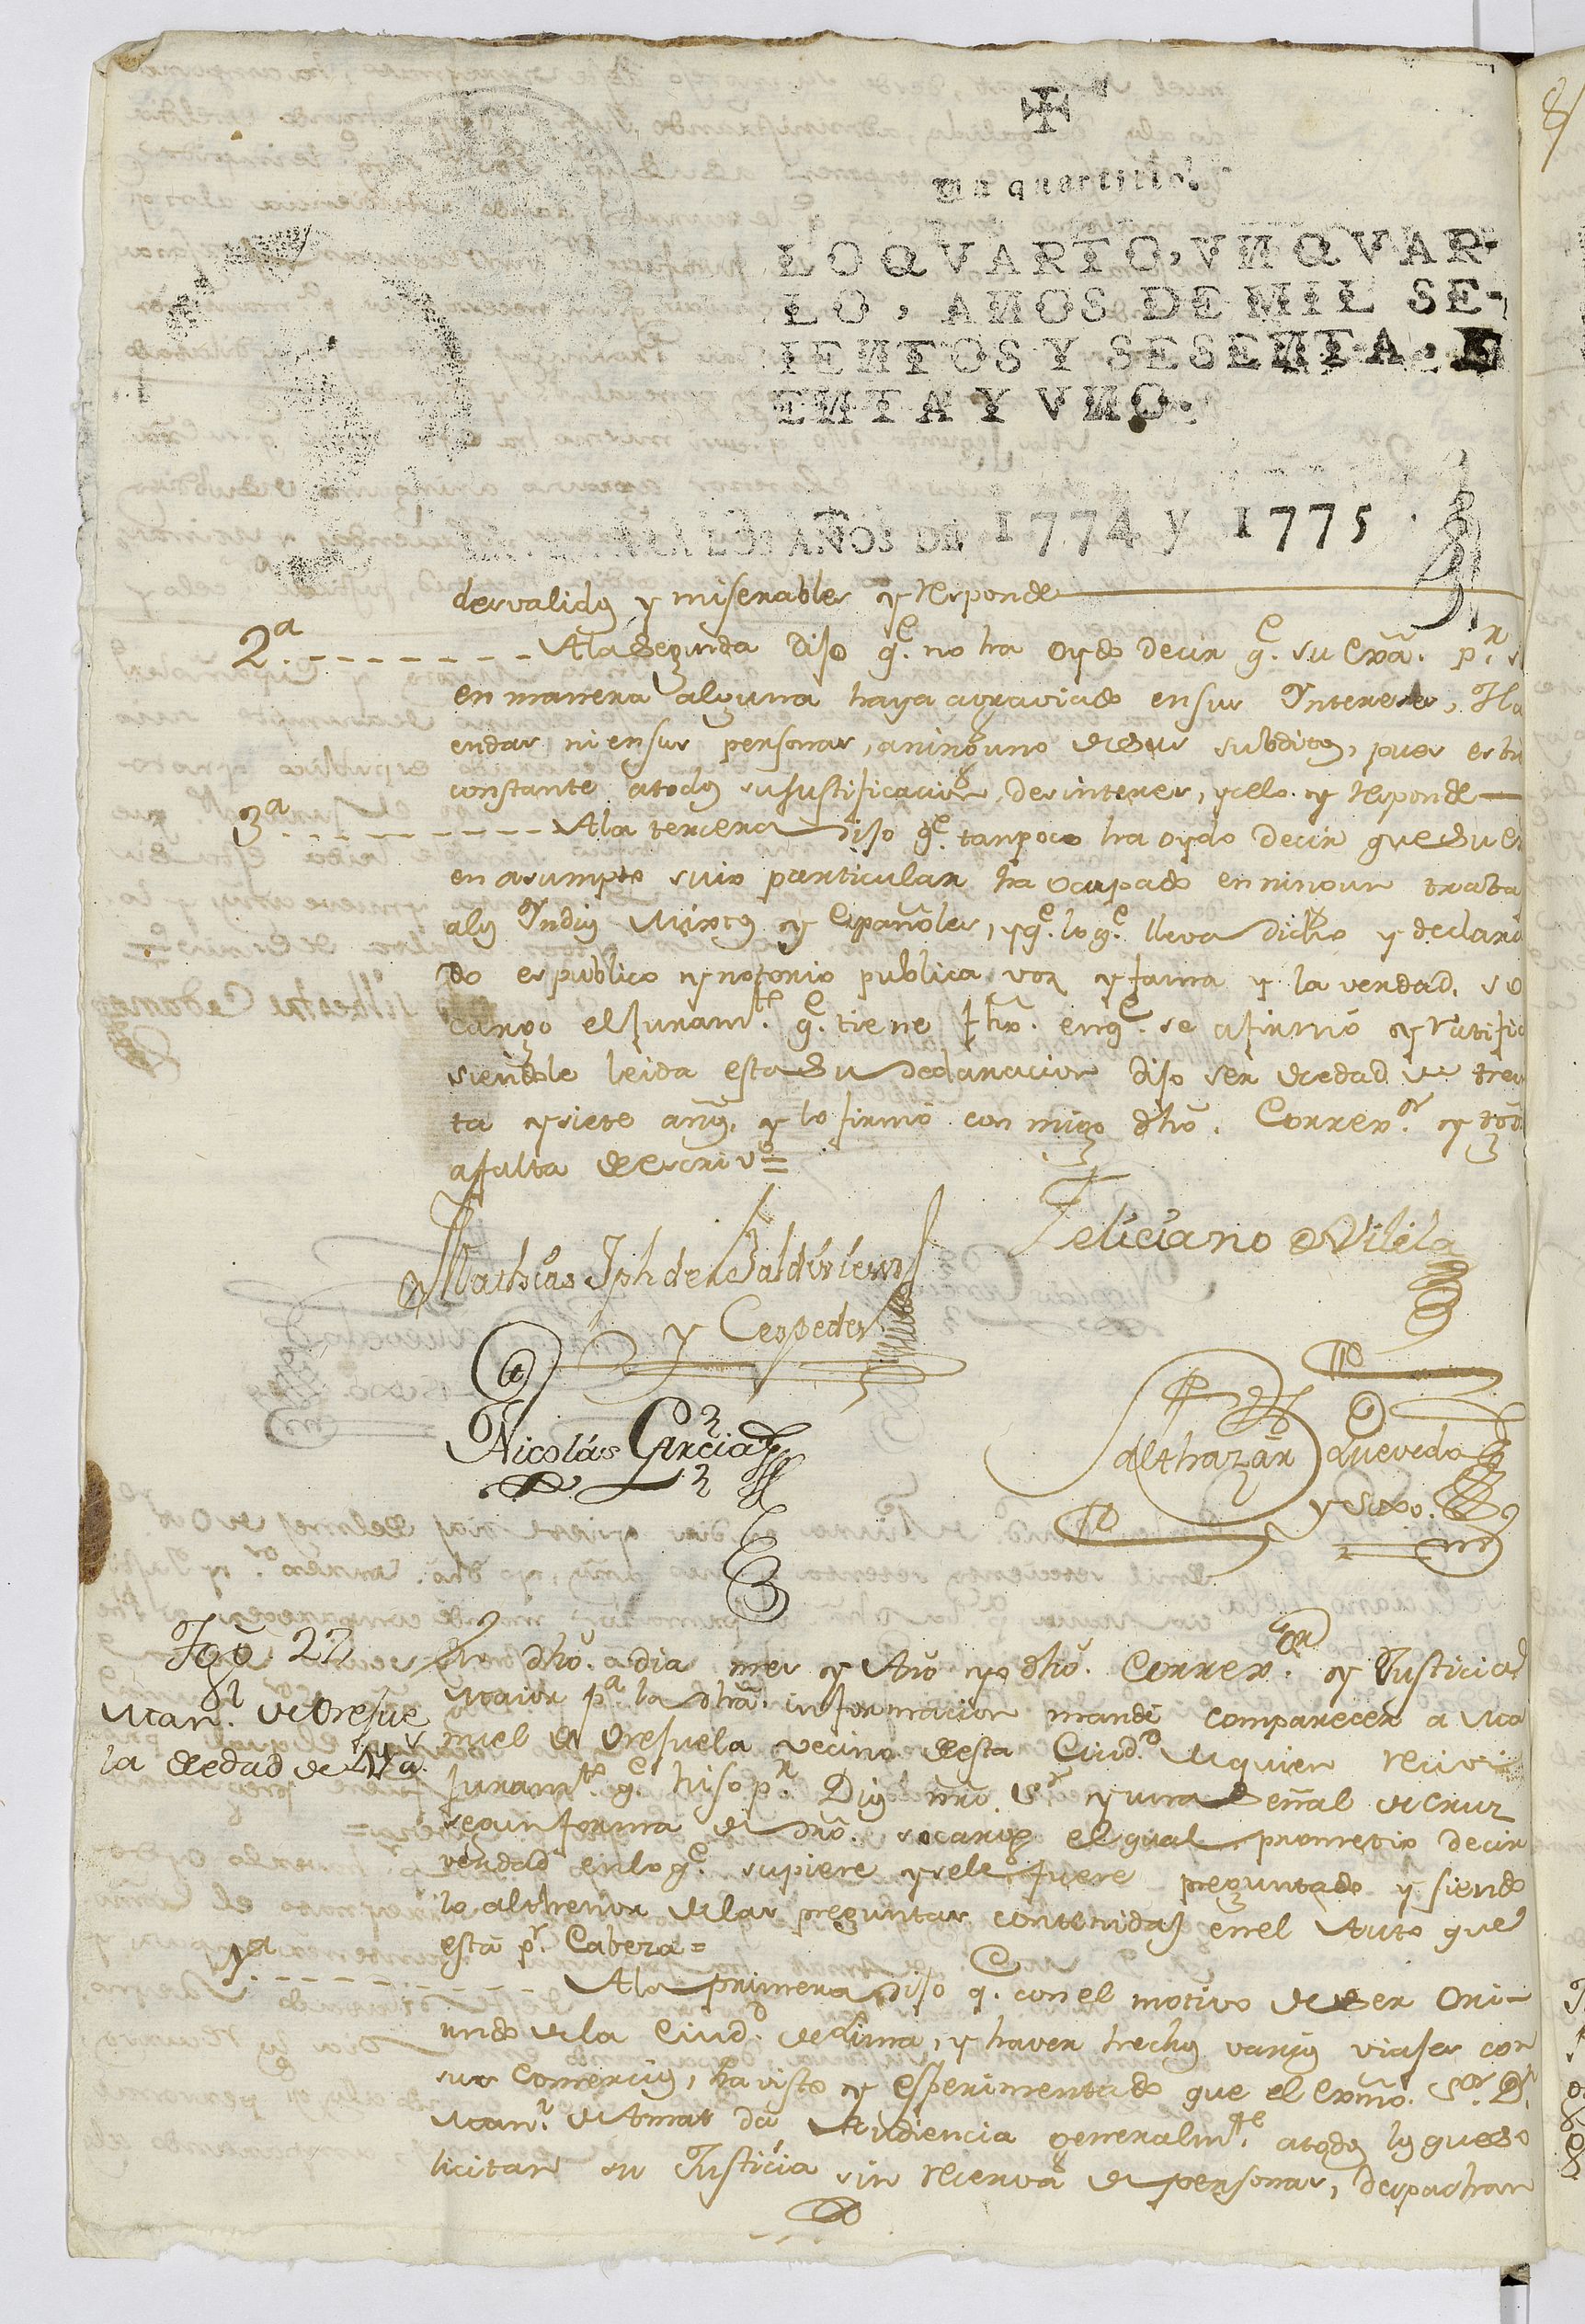 Un quartillo.
LO QVARTO, VN QVAR-
LO, AÑOS DE MIL SE-
IENTOS Y SESENTA, 
ENTA Y VNO.
LOS AÑOS DE 1774 y 1775.
desvalidos y miserables y responde
2.ª Ala Segunda dijo q.e no ha oydo decir q.e su Exâ. p.r s
en manera alguna haya agraviado en sus Intereses, Ha
endas, ni en sus personas, aninguno de sus subditos, pues es bi
constante atodos su Justificacion, desinteres, y celo. y responde
3.ª Ala tercera dijo q.e tanpoco ha oydo decir que su Ex
en asumpto suio particular ha ocupado en ningun traba
alos Indios Mixtos y Españoles, y q.e lo q.e lleva dicho y declara
do es publico y notorio publica voz y fama y la verdad, so
cargo el juram.to q.e tiene fho. en q.e se afirmó y ratificó
siendole leida esta su declaracion dijo ser de edad de trein
ta y siete años, y lo firmó con migo dhô. Correx.or y tgõs
afalta de escriv.o =
Mathias Jph de Baldivieso
y Cespedes
Feliciano de Vilela
Nicolás Garcia
Balthazar Quevedo
y Seixo.
Tgõ. 22
Man.l de Oresue
la de edad de
En dhô. dia mes y Año yo dhô. Correx.or y Justicia
Maior p.a la dhâ. informacion mandé comparecer a Ma
nuel de Oresuela vecino desta Ciud.d de quien recivi
Juram.to q.e hiso p.r Dios nrô. S.r y una Señal de cruz
segun forma de drô. so cargo el qual prometio decir
verdad en lo q.e supiere y se le fuere preguntado y siendo
lo althenor de las preguntas contenidas en el Auto que
está p.r Cabeza =
1.ª Ala primera dijo q.e con el motivo de ser Ori-
undo de la Ciud.d de Lima, y haver hechos varios viajes con
sus Comercios, ha visto y esperimentado que el Exmô. S.or D.n
Man.l de Amat da Audiencia generalm.te atodos los que so
licitan su Justicia sin reserva de personas, despachan